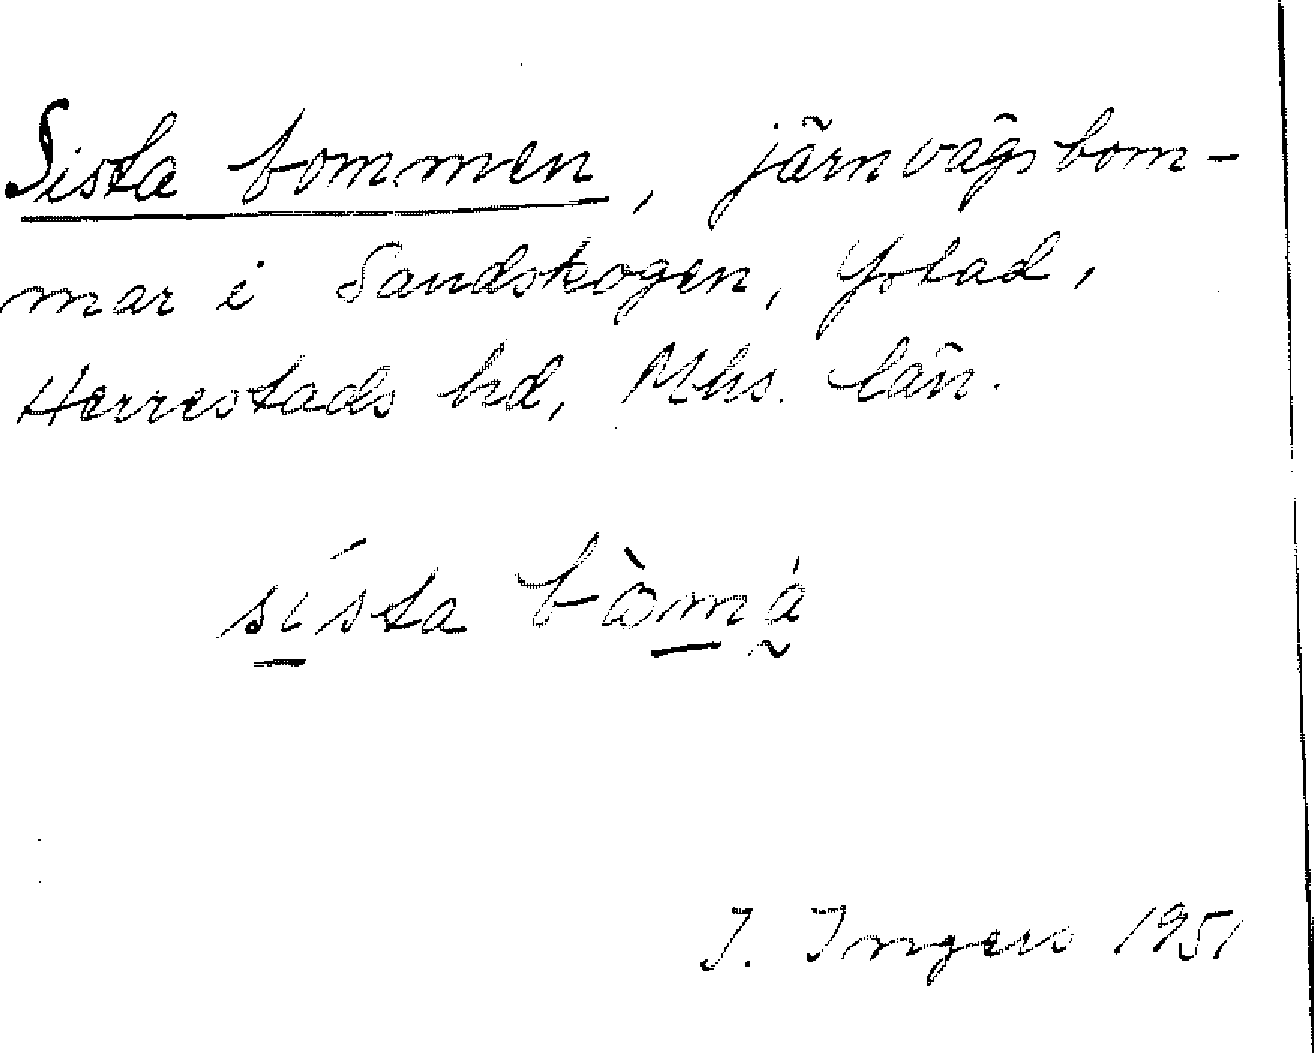 Sista bommen, järnvägsbom-
mar i Sandskogen, Ystad,
Herrestads hd, Mhs. län.
sísta bòmá̰
I. Ingers 1951